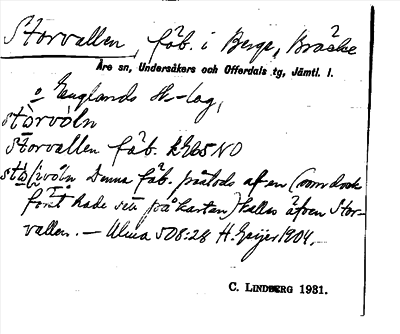 Storvallen, fäb. i Berge, Bräcke
Åre sn, Undersåkers och Offerdals tg, Jämtl. l.
o Englands sk-lag,
stòrvòln
Storvallen fäb. kG65NO
Denna fäb. påstods af en (som dock
först hade sett på kartan) kallas äfven Stor-
vallen. — Ulma 508:28 H. Geijer 1904.
C. LINDBERG 1931.